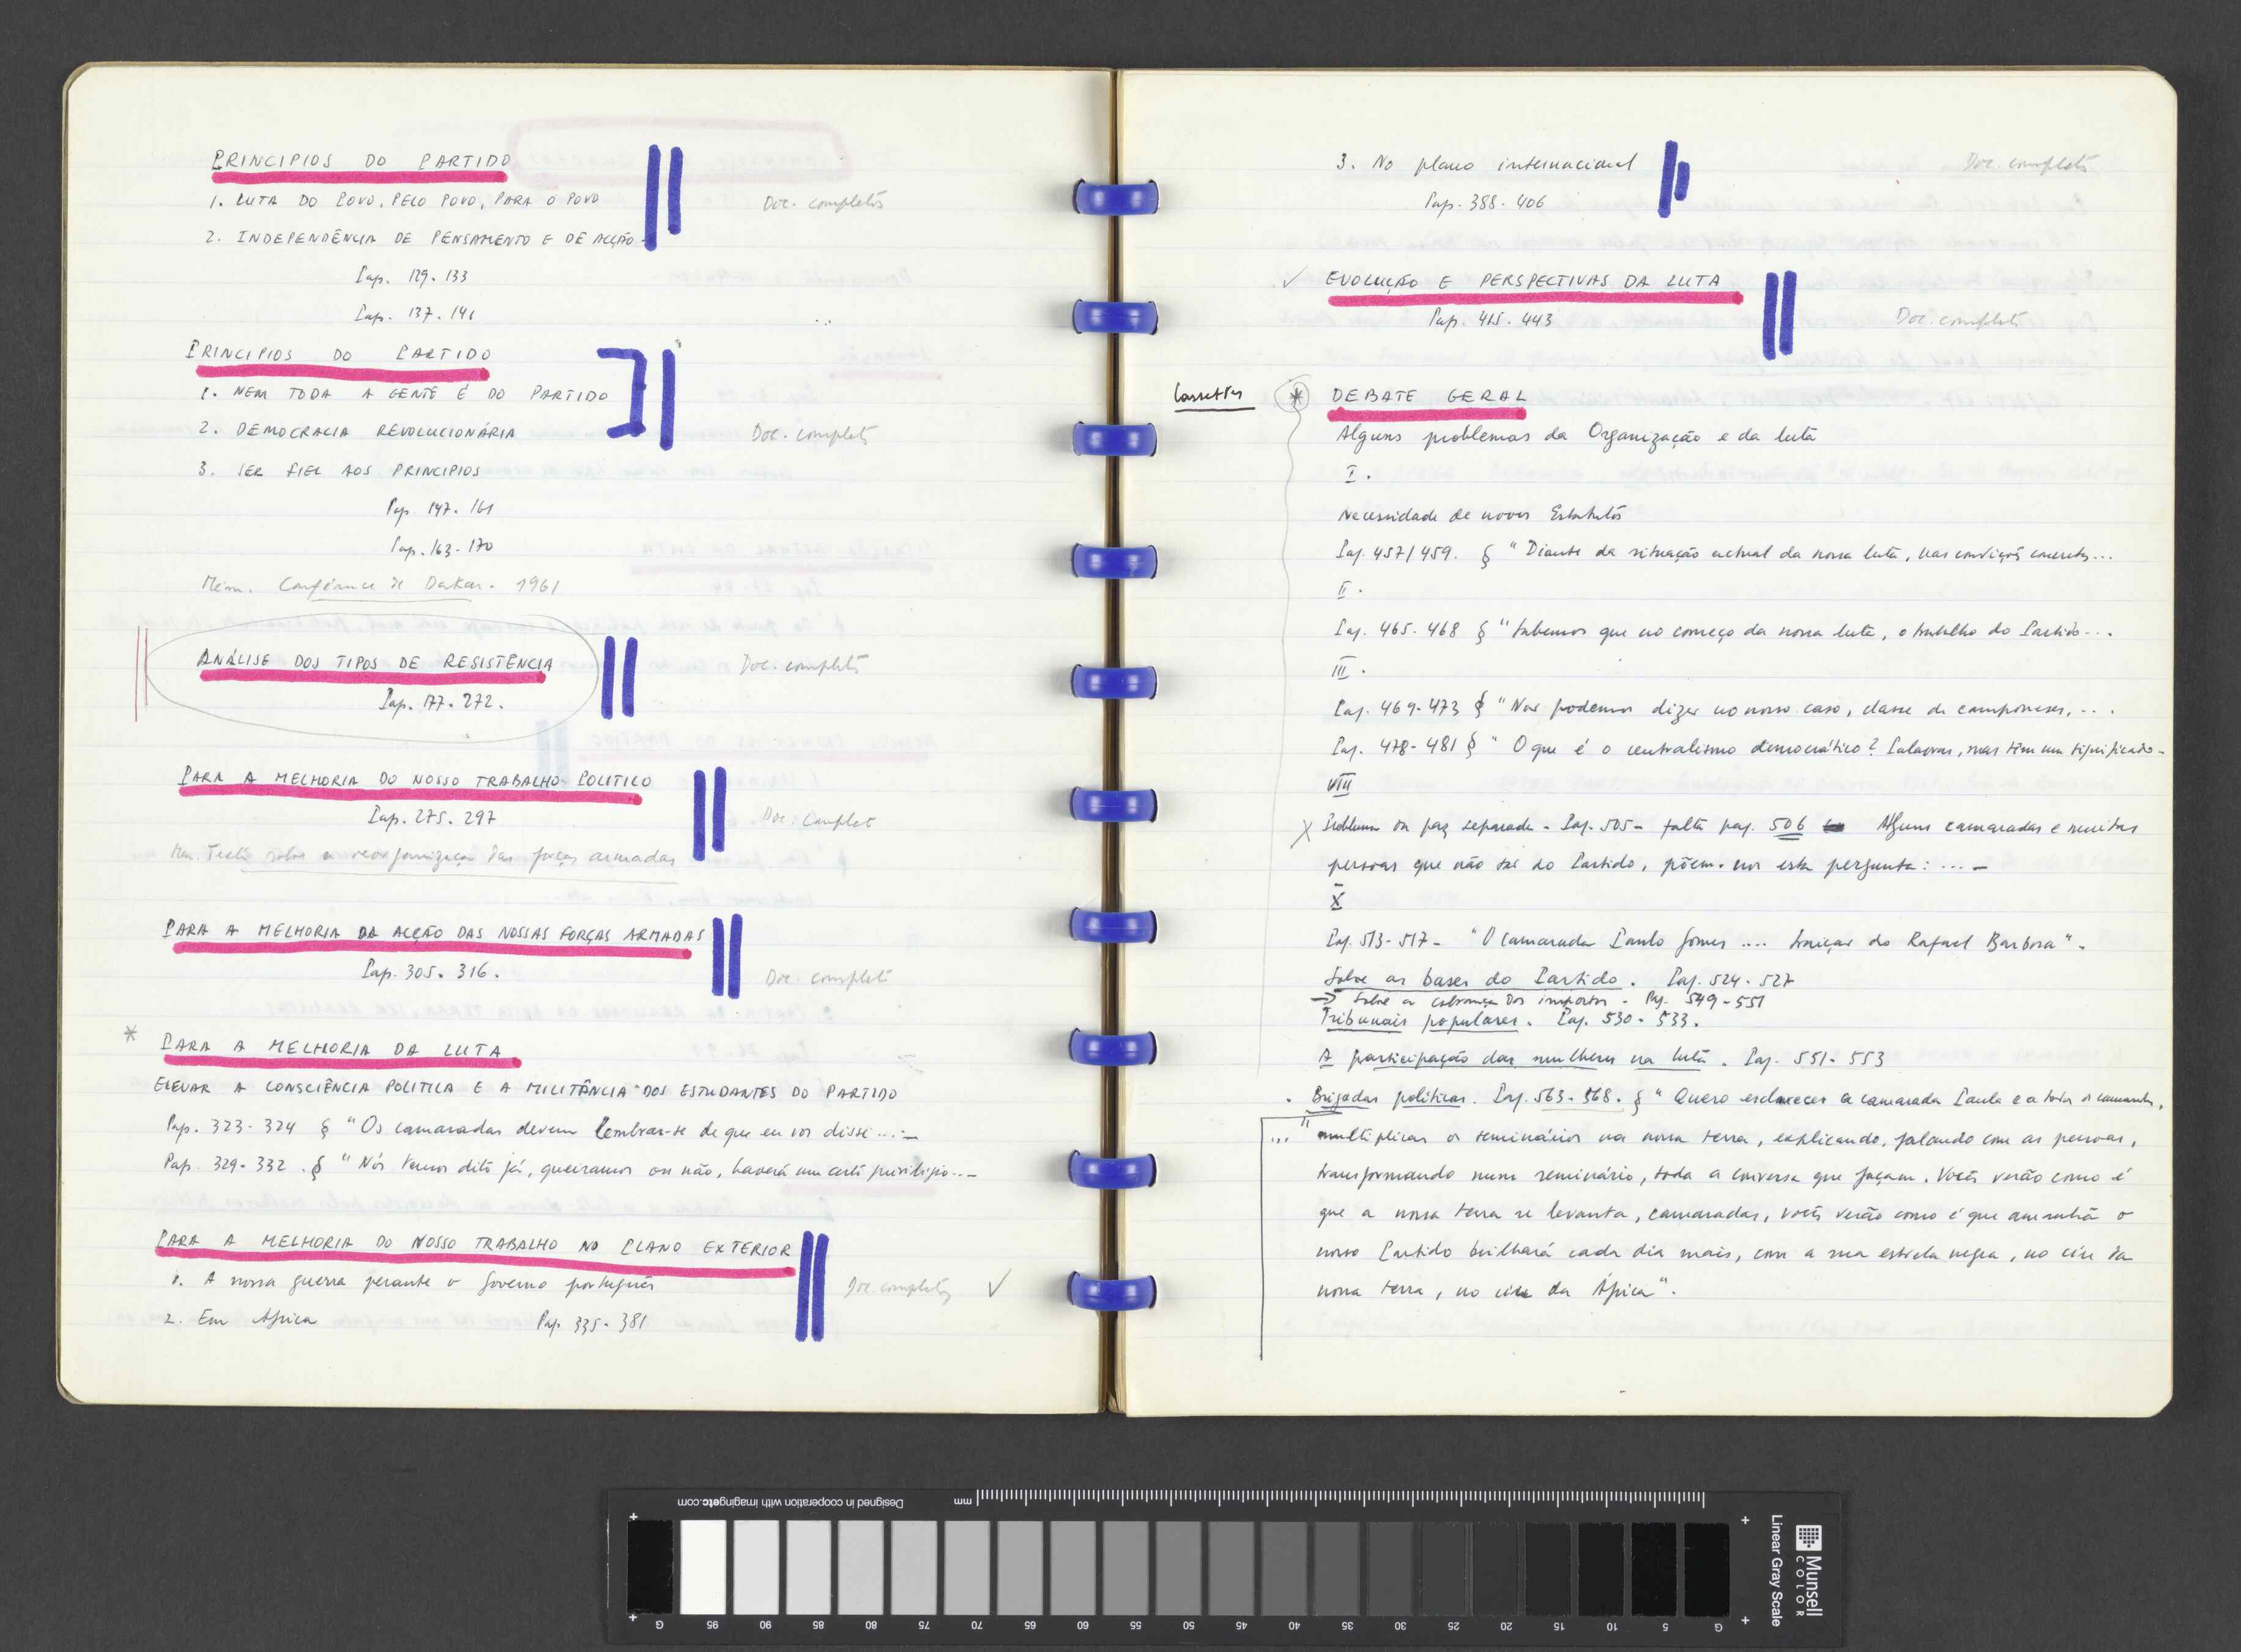 PRINCIPIOS DO PARTIDO
1. LUTA DO POVO, PELO POVO, PARA O POVO
Doc. completos
2. INDEPENDÊNCIA DE PENSAMENTO E DE ACÇÃO
Pap. 129-133
Pap. 137-141
PRINCIPIOS DO PARTIDO
1. NEM TODA A GENTE É DO PARTIDO
2. DEMOCRACIA REVOLUCIONÁRIA
Doc. completo
3. SER FIEL AOS PRINCIPIOS
Pap. 147-161
Pap. 163-170
Mém. Conférence de Dakar - 1961
ANÁLISE DOS TIPOS DE RESISTÊNCIA
Doc. completo
Pap. 177-272.
PARA A MELHORIA DO NOSSO TRABALHO POLITICO
Pap. 275-297
Doc. Complet
armadas
PARA A MELHORIA DA ACÇÃO DAS NOSSAS FORÇAS ARMADAS
Pap. 305-316.
Doc. completo
* PARA A MELHORIA DA LUTA
ELEVAR A CONSCIÊNCIA POLITICA E A MILITÂNCIA DOS ESTUDANTES DO PARTIDO
Pap. 323-324 § "Os camaradas devem lembrar-se de que eu vos disse...-
Pap. 329-332. § "Nós temos dito já, queiramos ou não, haverá um certo privilégio...-
PARA A MELHORIA DO NOSSO TRABALHO NO PLANO EXTERIOR
1. A nossa guerra perante o Governo português
Doc. completos ✓
2. Em Africa Pap 335-381
3. No plano internacional
Doc. completo
Pap. 388-406
✓ EVOLUÇÃO E PERSPECTIVAS DA LUTA
Pap. 415-443
Doc. completo
Cassettes * DEBATE GERAL
Alguns problemas da Organização e da luta
I.
Necessidade de novos Estatutos
Pag. 457/459. § "Diante da situação actual da nossa luta, nas condições concretas...
II.
Pag. 465-468 § "Sabemos que no começo da nossa luta, o trabalho do Partido...
III.
Pag. 469-473 § "Nós podemos dizer no nosso caso, classe de camponeses, ...
Pag. 478-481 § "O que é o centralismo democrático? Palavras, mas têm um significado-
VIII
X Problema da paz separada - Pag. 505- falta pag. 506 Alguns camaradas e muitas
pessoas que não são do Partido, põem-nos esta pergunta: ... -
X
Pag. 513-517- "O camarada Paulo Gomes .... traição do Rafael Barbosa".
Sobre as bases do Partido. Pag. 524-527
→ Sobre a cobrança dos impostos - Pag. 549-551
Tribunais populares. Pag. 530-533.
A participação das mulheres na luta. Pag. 551-553
. Brigadas politicas. Pag. 563-568. § "Quero esclarecer a camarada Paula e a todos os camaradas,
..." multiplicar os seminários na nossa terra, explicando, falando com as pessoas,
transformando num seminário, toda a conversa que façam. Vocês verão como é
que a nossa terra se levanta, camaradas, vocês verão como é que amanhã o
nosso Partido brilhará cada dia mais, com a sua estrela negra, no céu da
nossa terra, no céu da África".
Designed in cooperation with imagingetc.com
mm
Munsell COLOR
Linear Gray Scale
G 95 90 85 80 75 70 65 60 55 50 45 40 35 30 25 20 15 10 5 G